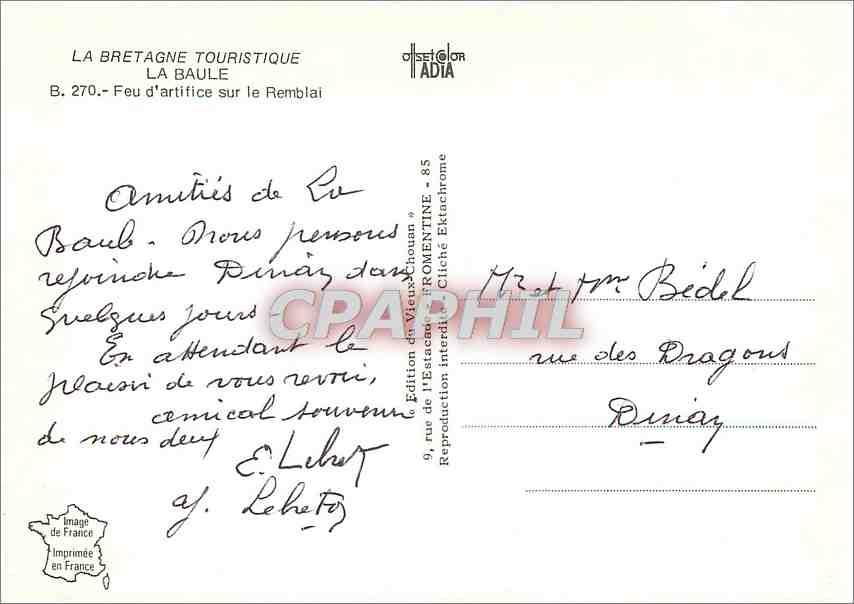 LA BRETAGNE TOURISTIQUE
LA BAULE
B. 270.- Feu d'artifice sur le Remblai
offset color
ADIA
Amitiés de La
Baule. Nous pensons
rejoindre Dinan dans
quelques jours.
En attendant le
plaisir de vous revoir,
amical souvenir
de nous deux
E. Lebret
Lebreton
« Edition du Vieux Chouan »
9, rue de l'Estacade - FROMENTINE - 85
Reproduction interdite - Cliché Ektachrome
Mr et Mme Bédel
rue des Dragons
Dinan
Image
de France
Imprimée
en France
CPAPHIL